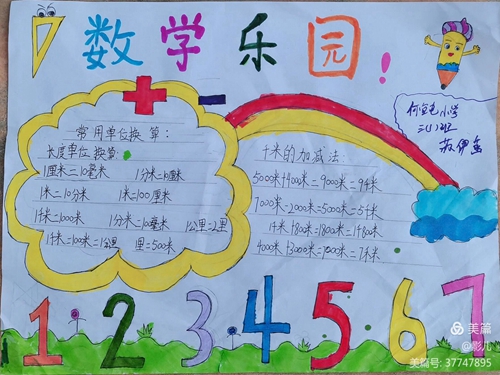 数学乐园!
何宅屯小学
三(1)班
苏伊金
常用单位换算:
长度单位换算:
1厘米=10毫米 1分米=10厘米
1米=10分米 1米=100厘米
1千米=1000米 1分米=100毫米 1公里=2里
1千米=1000米=1公里 1里=500米
千米的加减法:
5000米+4000米=9000米=9千米
7000米-2000米=5000米=5千米
4000米+3000米=7000米=7千米
1 2 3 4 5 6 7
美篇
@影儿
美篇号: 37747895